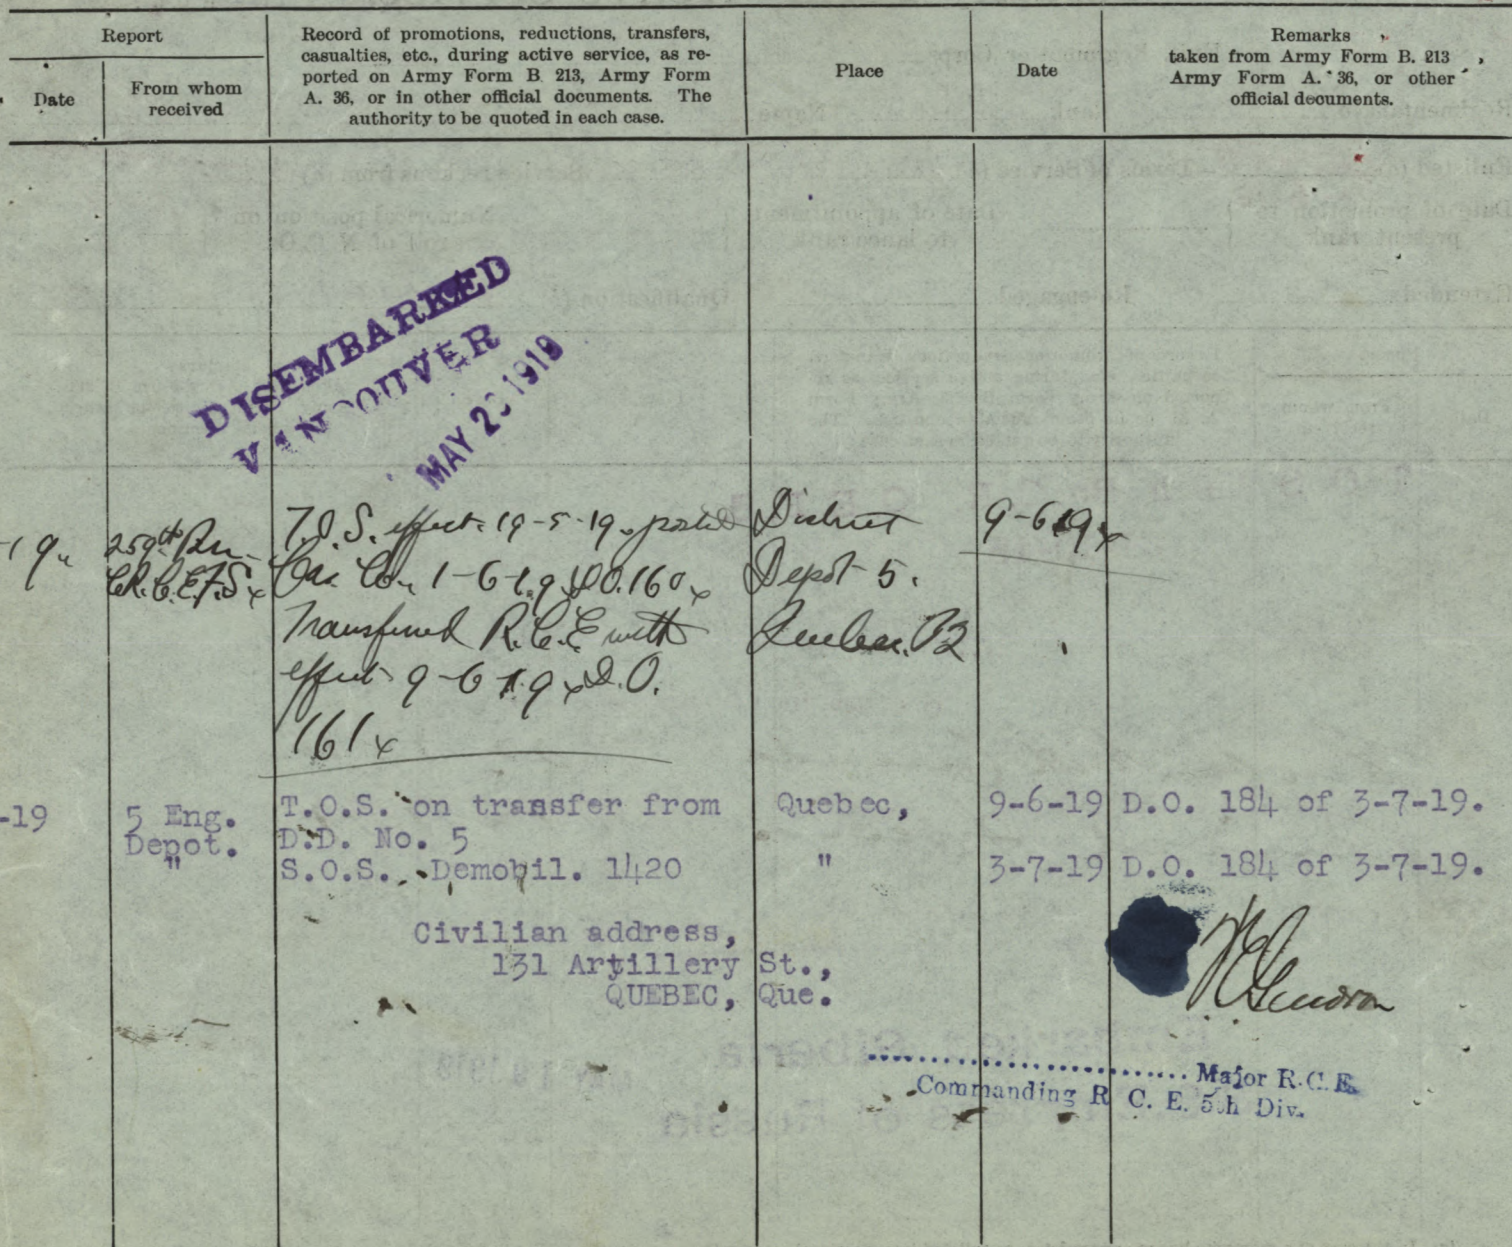 Report
Date
From whom
received
Record of promotions, reductions, transfers,
casualties, etc., during active service, as re-
ported on Army Form B. 213, Army Form
A. 36, or in other official documents. The
authority to be quoted in each case.
Place
Date
Remarks
taken from Army Form B. 213
Army Form A. 36, or other
official documents.
DISEMBARKED
VANCOUVER
MAY 2 1919
259th Bn
C.R.C.E.F.S.
T.O.S. effect. 19-5-19 posted
Cas. Co. 1-6-19 D.O. 160
Transferred R.C.E with
effect 9-6-19 D.O.
161
District
Depot 5.
Quebec. P2
9-6-19
-19
5 Eng.
Depot.
"
T.O.S. on transfer from
D.D. No. 5
S.O.S. Demobil. 1420
Quebec,
"
9-6-19
3-7-19
D.O. 184 of 3-7-19.
D.O. 184 of 3-7-19.
Civilian address,
131 Artillery St.,
QUEBEC, Que.
Major R.C.E.
Commanding R. C. E. 5th Div.